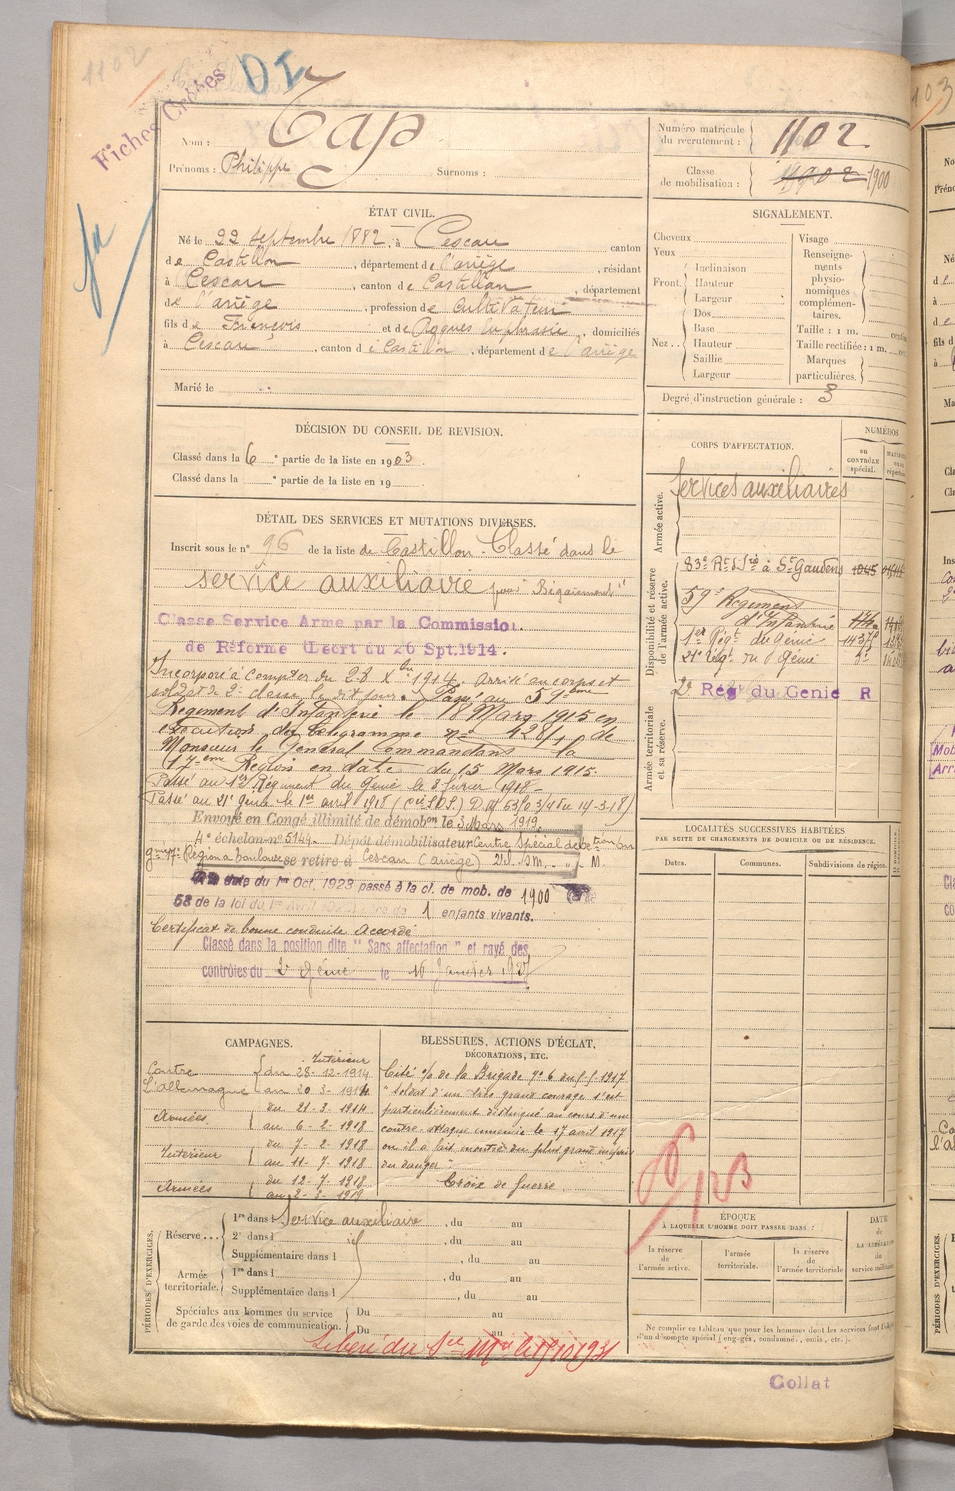 1102
Fiches Créées
DI
Nom : Tap
Prénoms : Philippe Surnoms :
Numéro matricule du recrutement : 1102
Classe de mobilisation : 1902 1900
ÉTAT CIVIL.
Né le 22 septembre 1882, à Cescau canton
de Castillon, département de l'ariège, résidant
à Cescau, canton de Castillon, département
de l'ariège, profession de Cultivateur
fils de François et de Rogues Euphrasie, domiciliés
à Cescau, canton de Castillon, département de l'ariège
Marié le
SIGNALEMENT.
Cheveux
Yeux
Front. Inclinaison
Hauteur
Largeur
Nez.. Dos
Base
Hauteur
Saillie
Largeur
Visage
Renseignements physionomiques complémentaires.
Taille : 1 m.
Taille rectifiée : 1 m.
Marques particulières.
Degré d'instruction générale : 3
DÉCISION DU CONSEIL DE REVISION.
Classé dans la 6e partie de la liste en 1903.
Classé dans la e partie de la liste en 19
DÉTAIL DES SERVICES ET MUTATIONS DIVERSES.
Inscrit sous le n° 96 de la liste de Castillon. Classé dans le
service auxiliaire pour Bégaiement
Classe Service Arme par la Commission
de Réforme (Décrt du 26 Spt.1914.
Incorporé à compter du 28 Xbre 1914. Arrivé au corps et
soldat de 2e classe le dit jour. Passé au 59ème
Régiment d'Infanterie le 18 Mars 1915 en
exécution du télégramme n° 428/1 de
Monsieur le Général Commandant la
17eme Région en date du 15 Mars 1915.
Passé au 1er Régiment du Génie le 8 février 1918
Passé au 21e Génie le 1er avril 1918
Envoyé en Congé illimité de démobon le 3 Mars 1919,
4e échelon n° 5144. Dépôt démobilisateur Centre Spécial de
Région à Toulouse se retire à Cescau (ariège)
du 1er Oct. 1923 passé à la cl. de mob. de 1900
58 de la loi du 1er 1 enfants vivants.
Certificat de bonne conduite Accordé
Classé dans la position dite "Sans affectation" et rayé des
contrôles du 2e Génie le 16 Janvier 1927
CORPS D'AFFECTATION.
NUMÉROS
au contrôle spécial.
Armée active.
Services auxiliaires
Disponibilité et réserve de l'armée active.
83e Rt d'Inf à St Gaudens
59e Régiment d'Infanterie
1er Régt du Génie
21e Régt du Génie
Armée territoriale et sa réserve.
2e Rég du Génie R
LOCALITÉS SUCCESSIVES HABITÉES
PAR SUITE DE CHANGEMENTS DE DOMICILE OU DE RÉSIDENCE.
Dates. Communes. Subdivisions de région.
CAMPAGNES.
Contre L'Allemagne
Intérieur
du 28-12-1914
au 20-3-
Armées
du 21-3-
au 6-2-1918
Intérieur
du 7-2-1918
au 11-7-1918
Armées
du 12-7-1918
au 2-3-1919
BLESSURES, ACTIONS D'ÉCLAT,
DÉCORATIONS, ETC.
Cité o/o de la Brigade n° 6 du 1917
"soldat d'un très grand courage s'est
particulièrement distingué au cours d'une
contre-attaque ennemie le 17 avril 1917
ou il a fait montre du plus grand mépris
du danger".
Croix de Guerre
PÉRIODES D'EXERCICES.
Réserve... 1re dans l Service auxiliaire, du au
2e dans l, du au
Supplémentaire dans l, du au
Armée territoriale. 1re dans l, du au
Supplémentaire dans l, du au
Spéciales aux hommes du service de garde des voies de communication. Du au
Du au
ÉPOQUE
À LAQUELLE L'HOMME DOIT PASSER DANS :
la réserve de l'armée active.
l'armée territoriale.
la réserve de l'armée territoriale
DATE de LA LIBÉRATION du service militaire.
Ne remplir ce tableau que pour les hommes dont les services font l'objet
d'un décompte spécial (engagés, condamnés, omis, etc.).
Libéré du Sce Mre le 15/10/1931
Collat